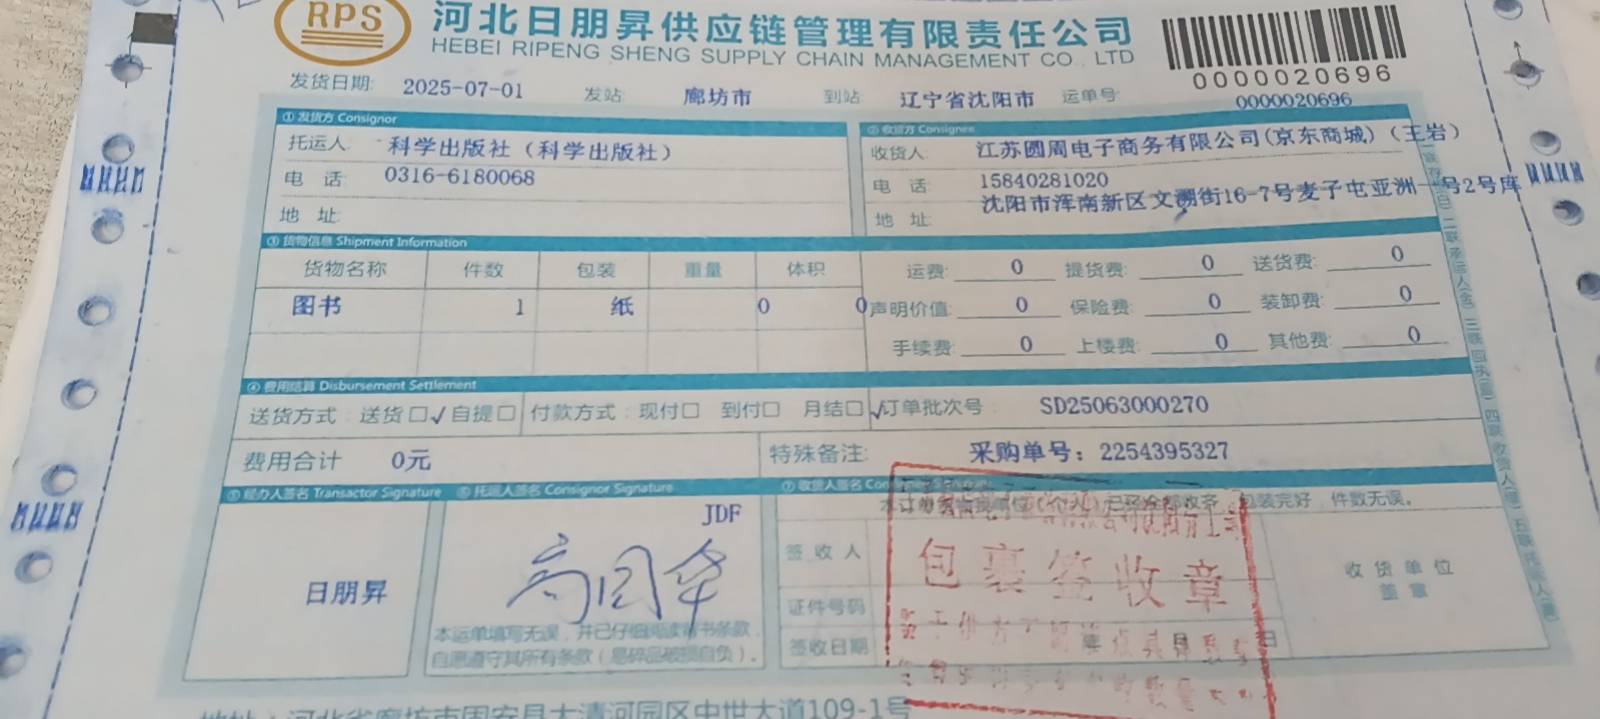 RPS
河北日朋昇供应链管理有限责任公司
HEBEI RIPENG SHENG SUPPLY CHAIN MANAGEMENT CO., LTD
0000020696
发货日期: 2025-07-01 发站 廊坊市 到站 辽宁省沈阳市 运单号: 0000020696
① 发货方 Consignor
② 收货方 Consignee
托运人: 科学出版社（科学出版社）
收货人: 江苏圆周电子商务有限公司(京东商城)（王岩）
电 话 0316-6180068
电 话: 15840281020
地 址:
地 址: 沈阳市浑南新区文溯街16-7号麦子屯亚洲一号2号库
③ 货物信息 Shipment Information
货物名称 件数 包装 重量 体积
图书 1 纸 0 0
运费: 0 提货费: 0 送货费: 0
声明价值: 0 保险费: 0 装卸费: 0
手续费: 0 上楼费: 0 其他费: 0
④ 费用结算 Disbursement Settlement
送货方式: 送货□√自提□ 付款方式: 现付□ 到付□ 月结□√ 订单批次号 SD25063000270
费用合计 0元 特殊备注: 采购单号: 2254395327
⑤ 经办人签名 Transactor Signature
⑥ 托运人签名 Consignor Signature
⑦ 收货人签名
包装完好，件数无误。
JDF
日朋昇
本运单填写无误，并已仔细阅读背书条款，
自愿遵守其所有条款（易碎品破损自负）。
签收人
证件号码
签收日期 年 月 日
包裹签收章
收货单位
盖章
地址：河北省廊坊市固安县大清河园区中世大道109-1号